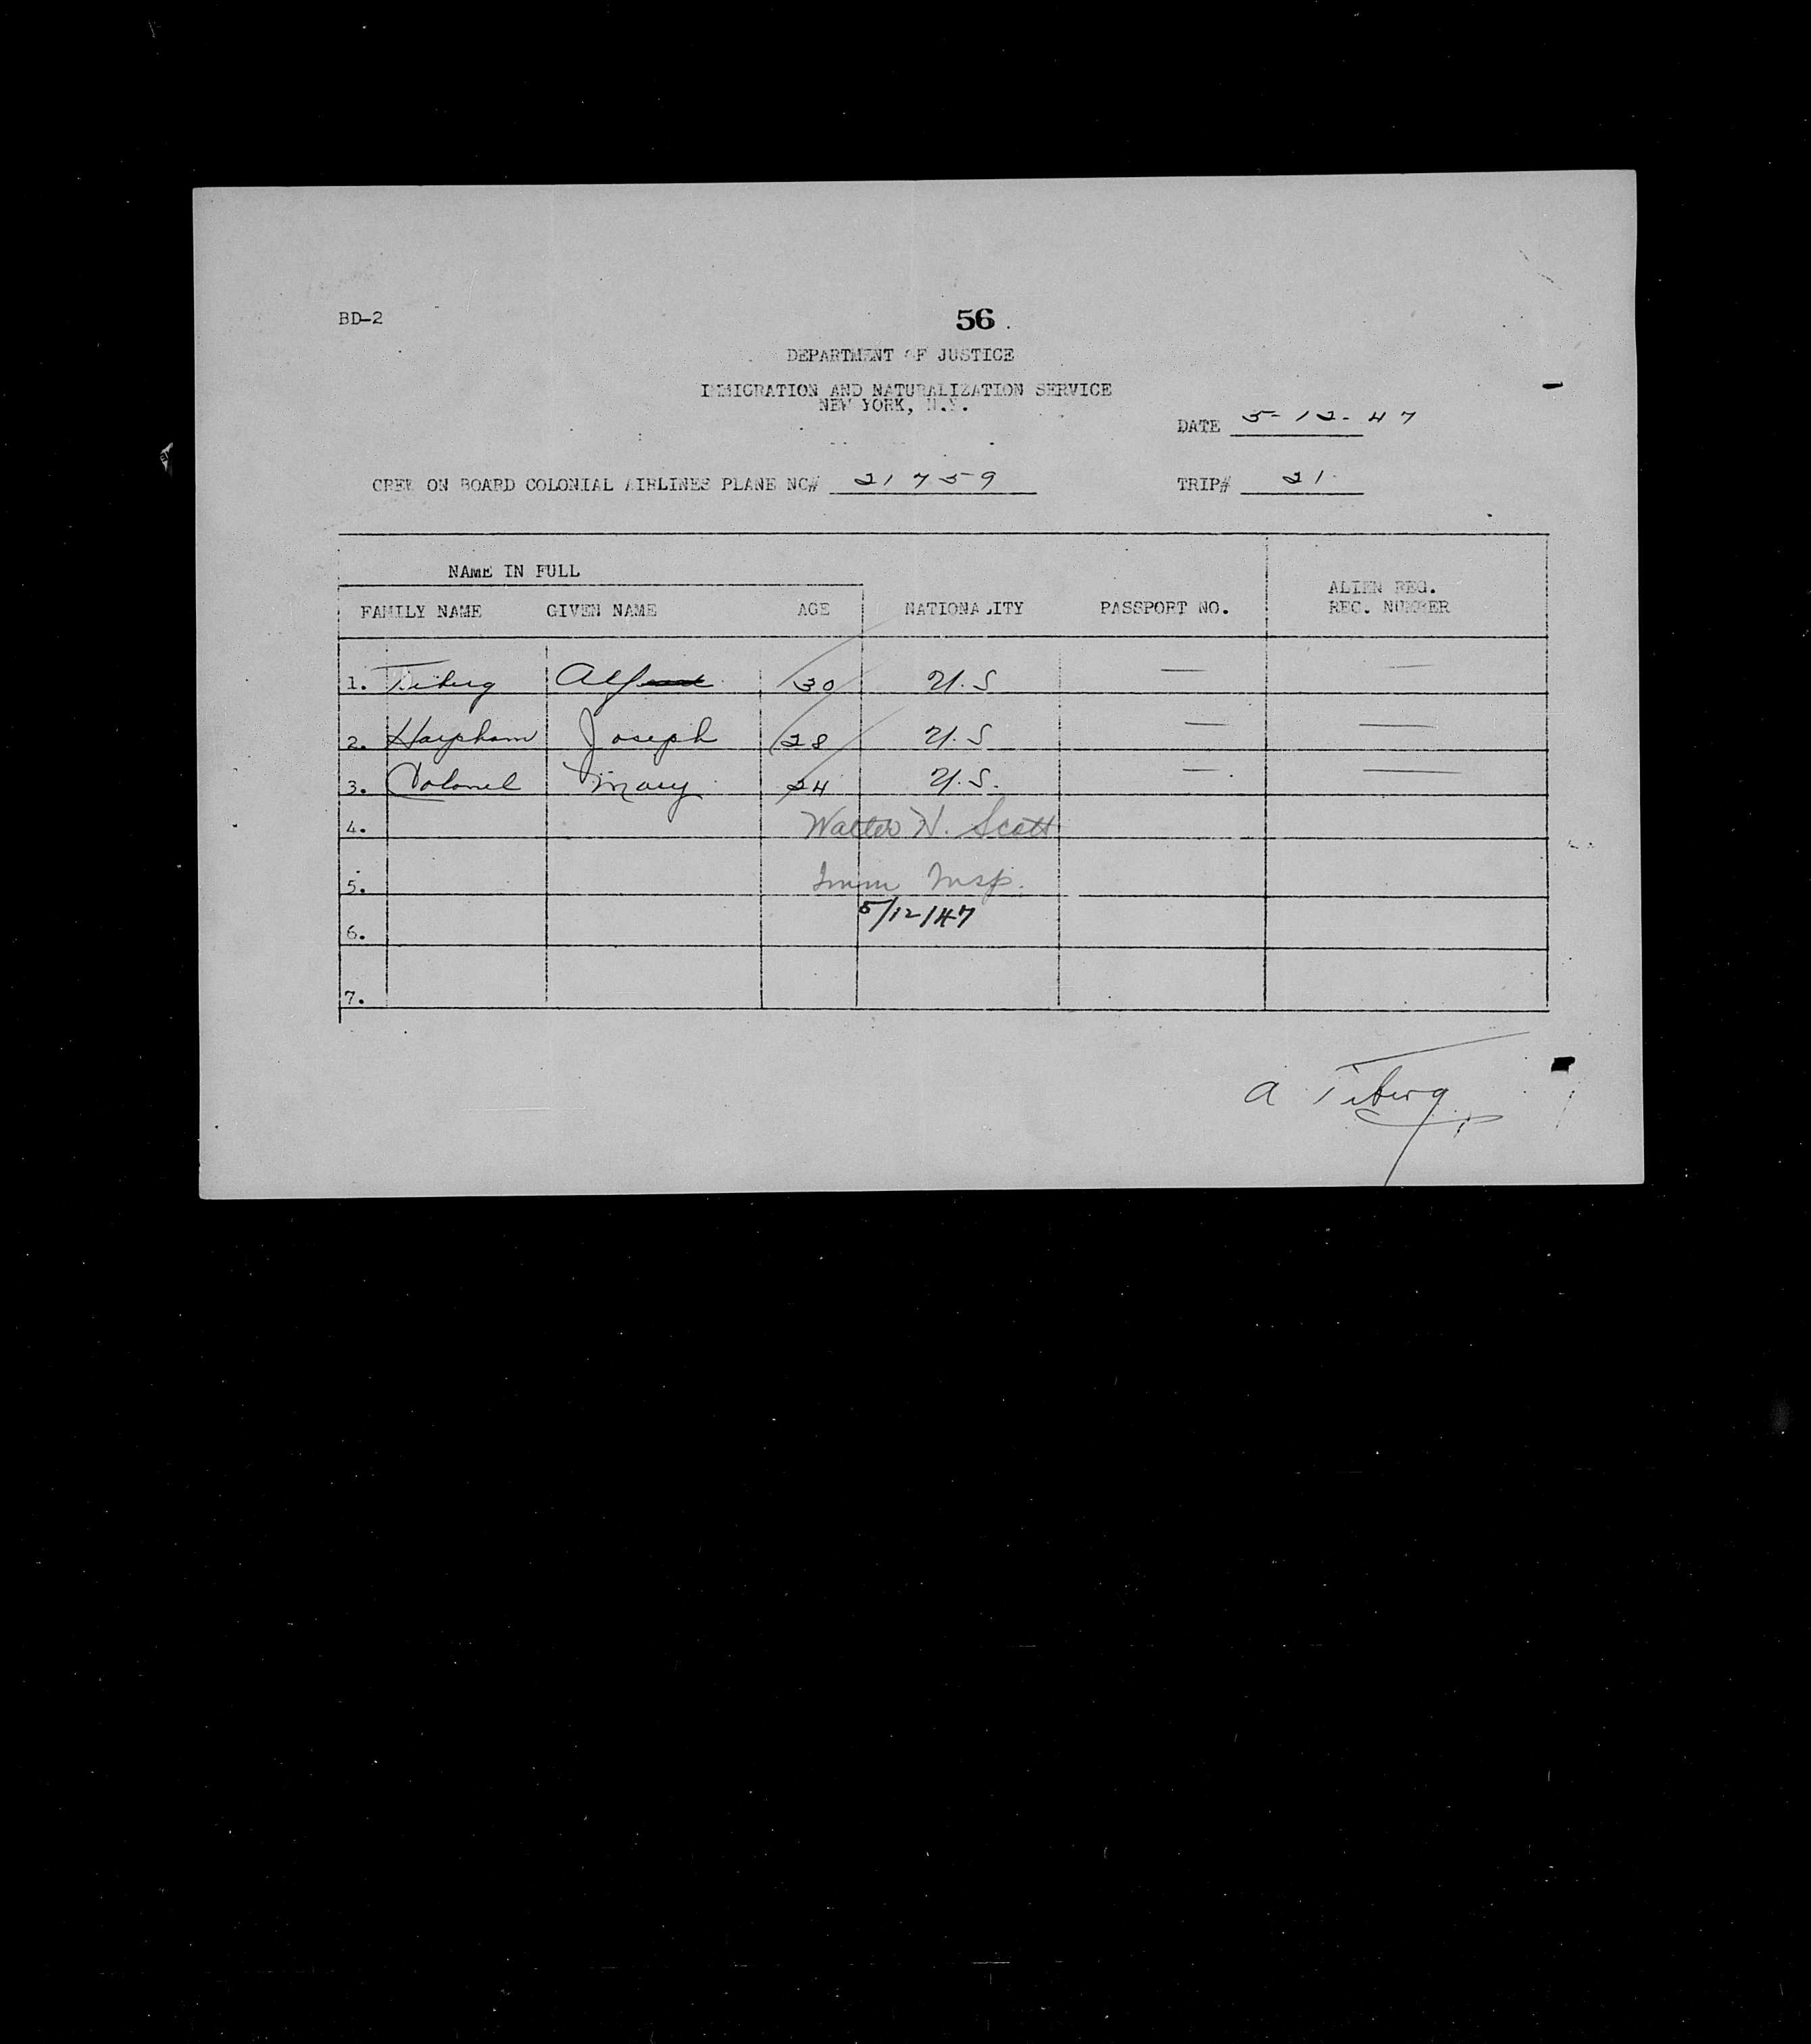 BD-2
56
DEPARTMENT OF JUSTICE
IMMIGRATION AND NATURALIZATION SERVICE
NEW YORK, N.Y.
DATE 5-12-47
CREW ON BOARD COLONIAL AIRLINES PLANE NC# 21759 TRIP# 21
NAME IN FULL
FAMILY NAME GIVEN NAME AGE NATIONALITY PASSPORT NO. ALIEN REG. REC. NUMBER
1. Tiberg Alf 30 U.S — —
2. Harpham Joseph 28 U.S — —
3. Colonel Mary 24 U.S. — —
4. Walter N. Scott
5. Imm Insp.
5/12/47
6.
7.
A Tiberg